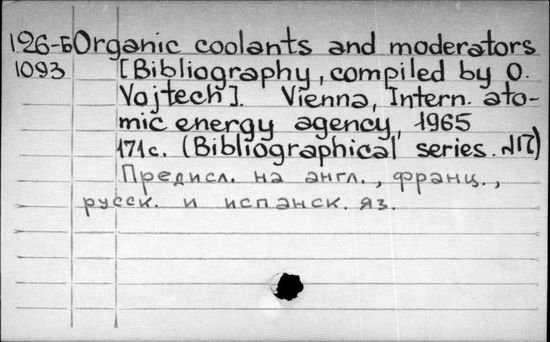 126-Б Organic coolants and moderators
1093 [Bibliography, compiled by O.
Vojtech]. Vienna, Intern. ato-
mic energy agency, 1965
171c. (Bibliographical series. №17)
Предисл. на англ., франц.,
русск. и испанск. яз.